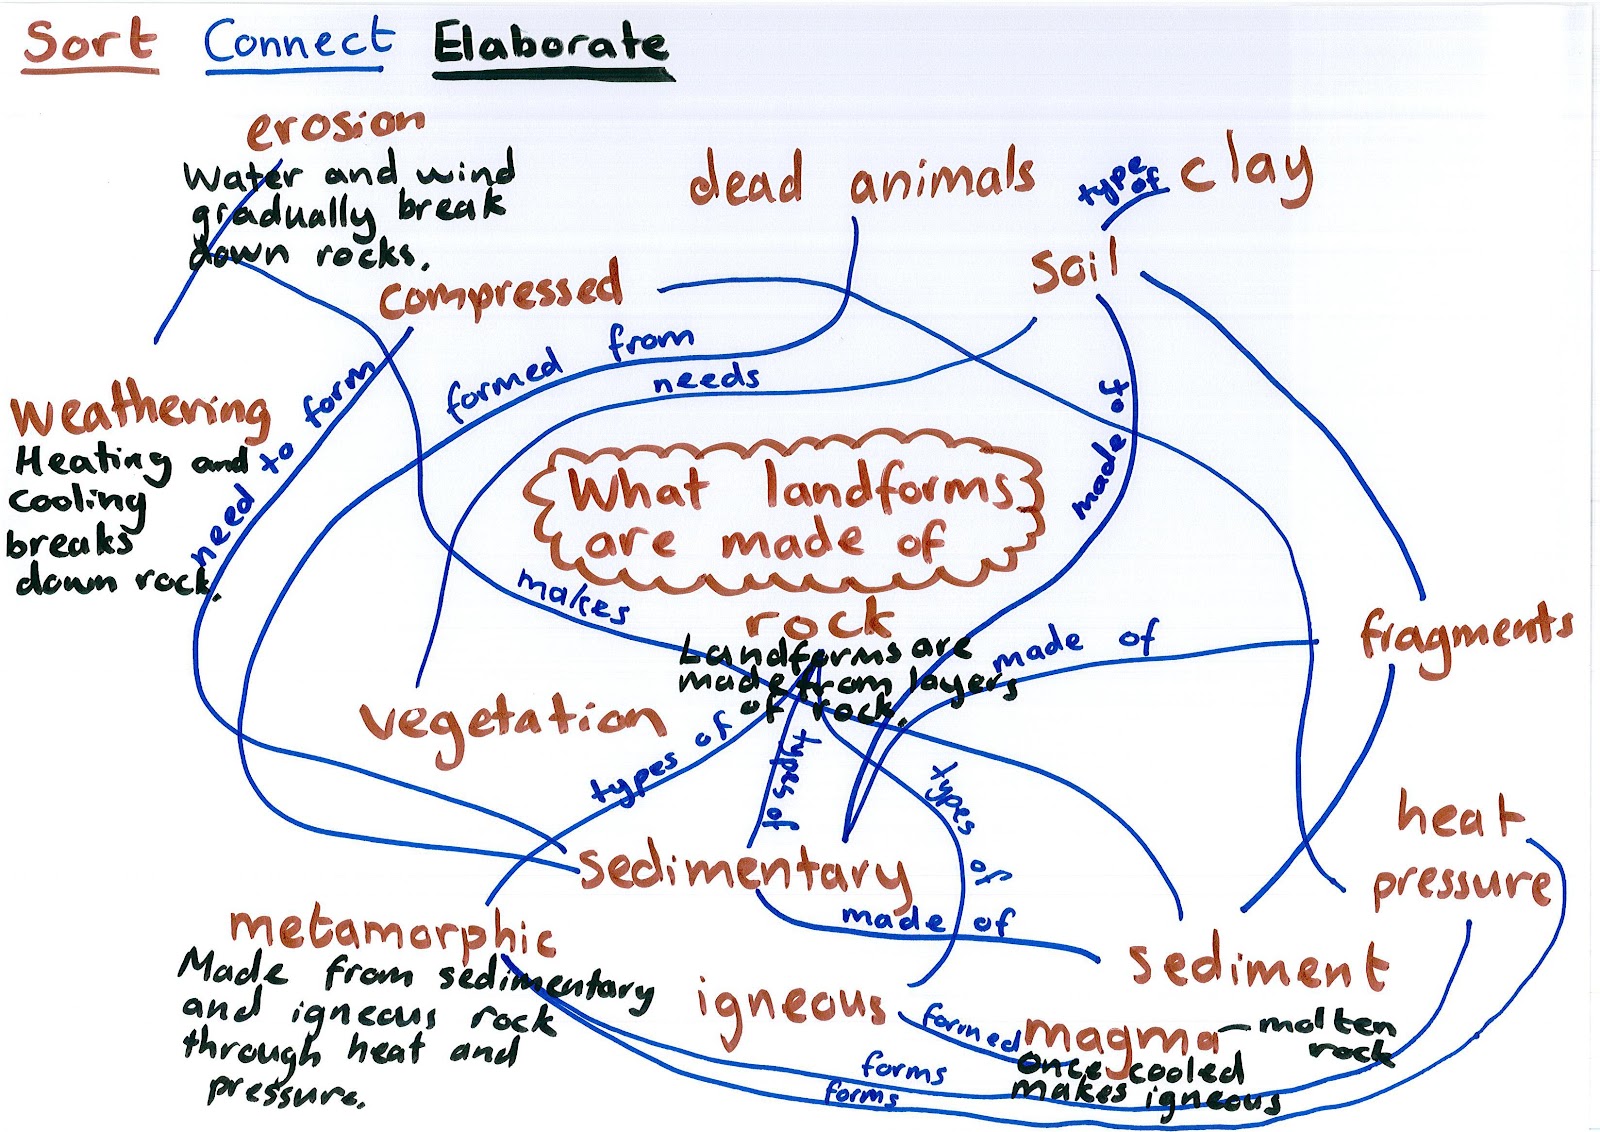 Sort Connect Elaborate
erosion
Water and wind
gradually break
down rocks.
dead animals
type of
clay
soil
compressed
formed from
needs
need to form
made of
weathering
Heating and
cooling
breaks
down rock.
What landforms
are made of
makes
rock
Landforms are
made from layers
of rock.
made of
fragments
vegetation
types of
types of
types of
heat
pressure
sedimentary
made of
sediment
metamorphic
Made from sedimentary
and igneous rock
through heat and
pressure.
igneous
formed
magma
molten
rock
once cooled
makes igneous
forms
forms